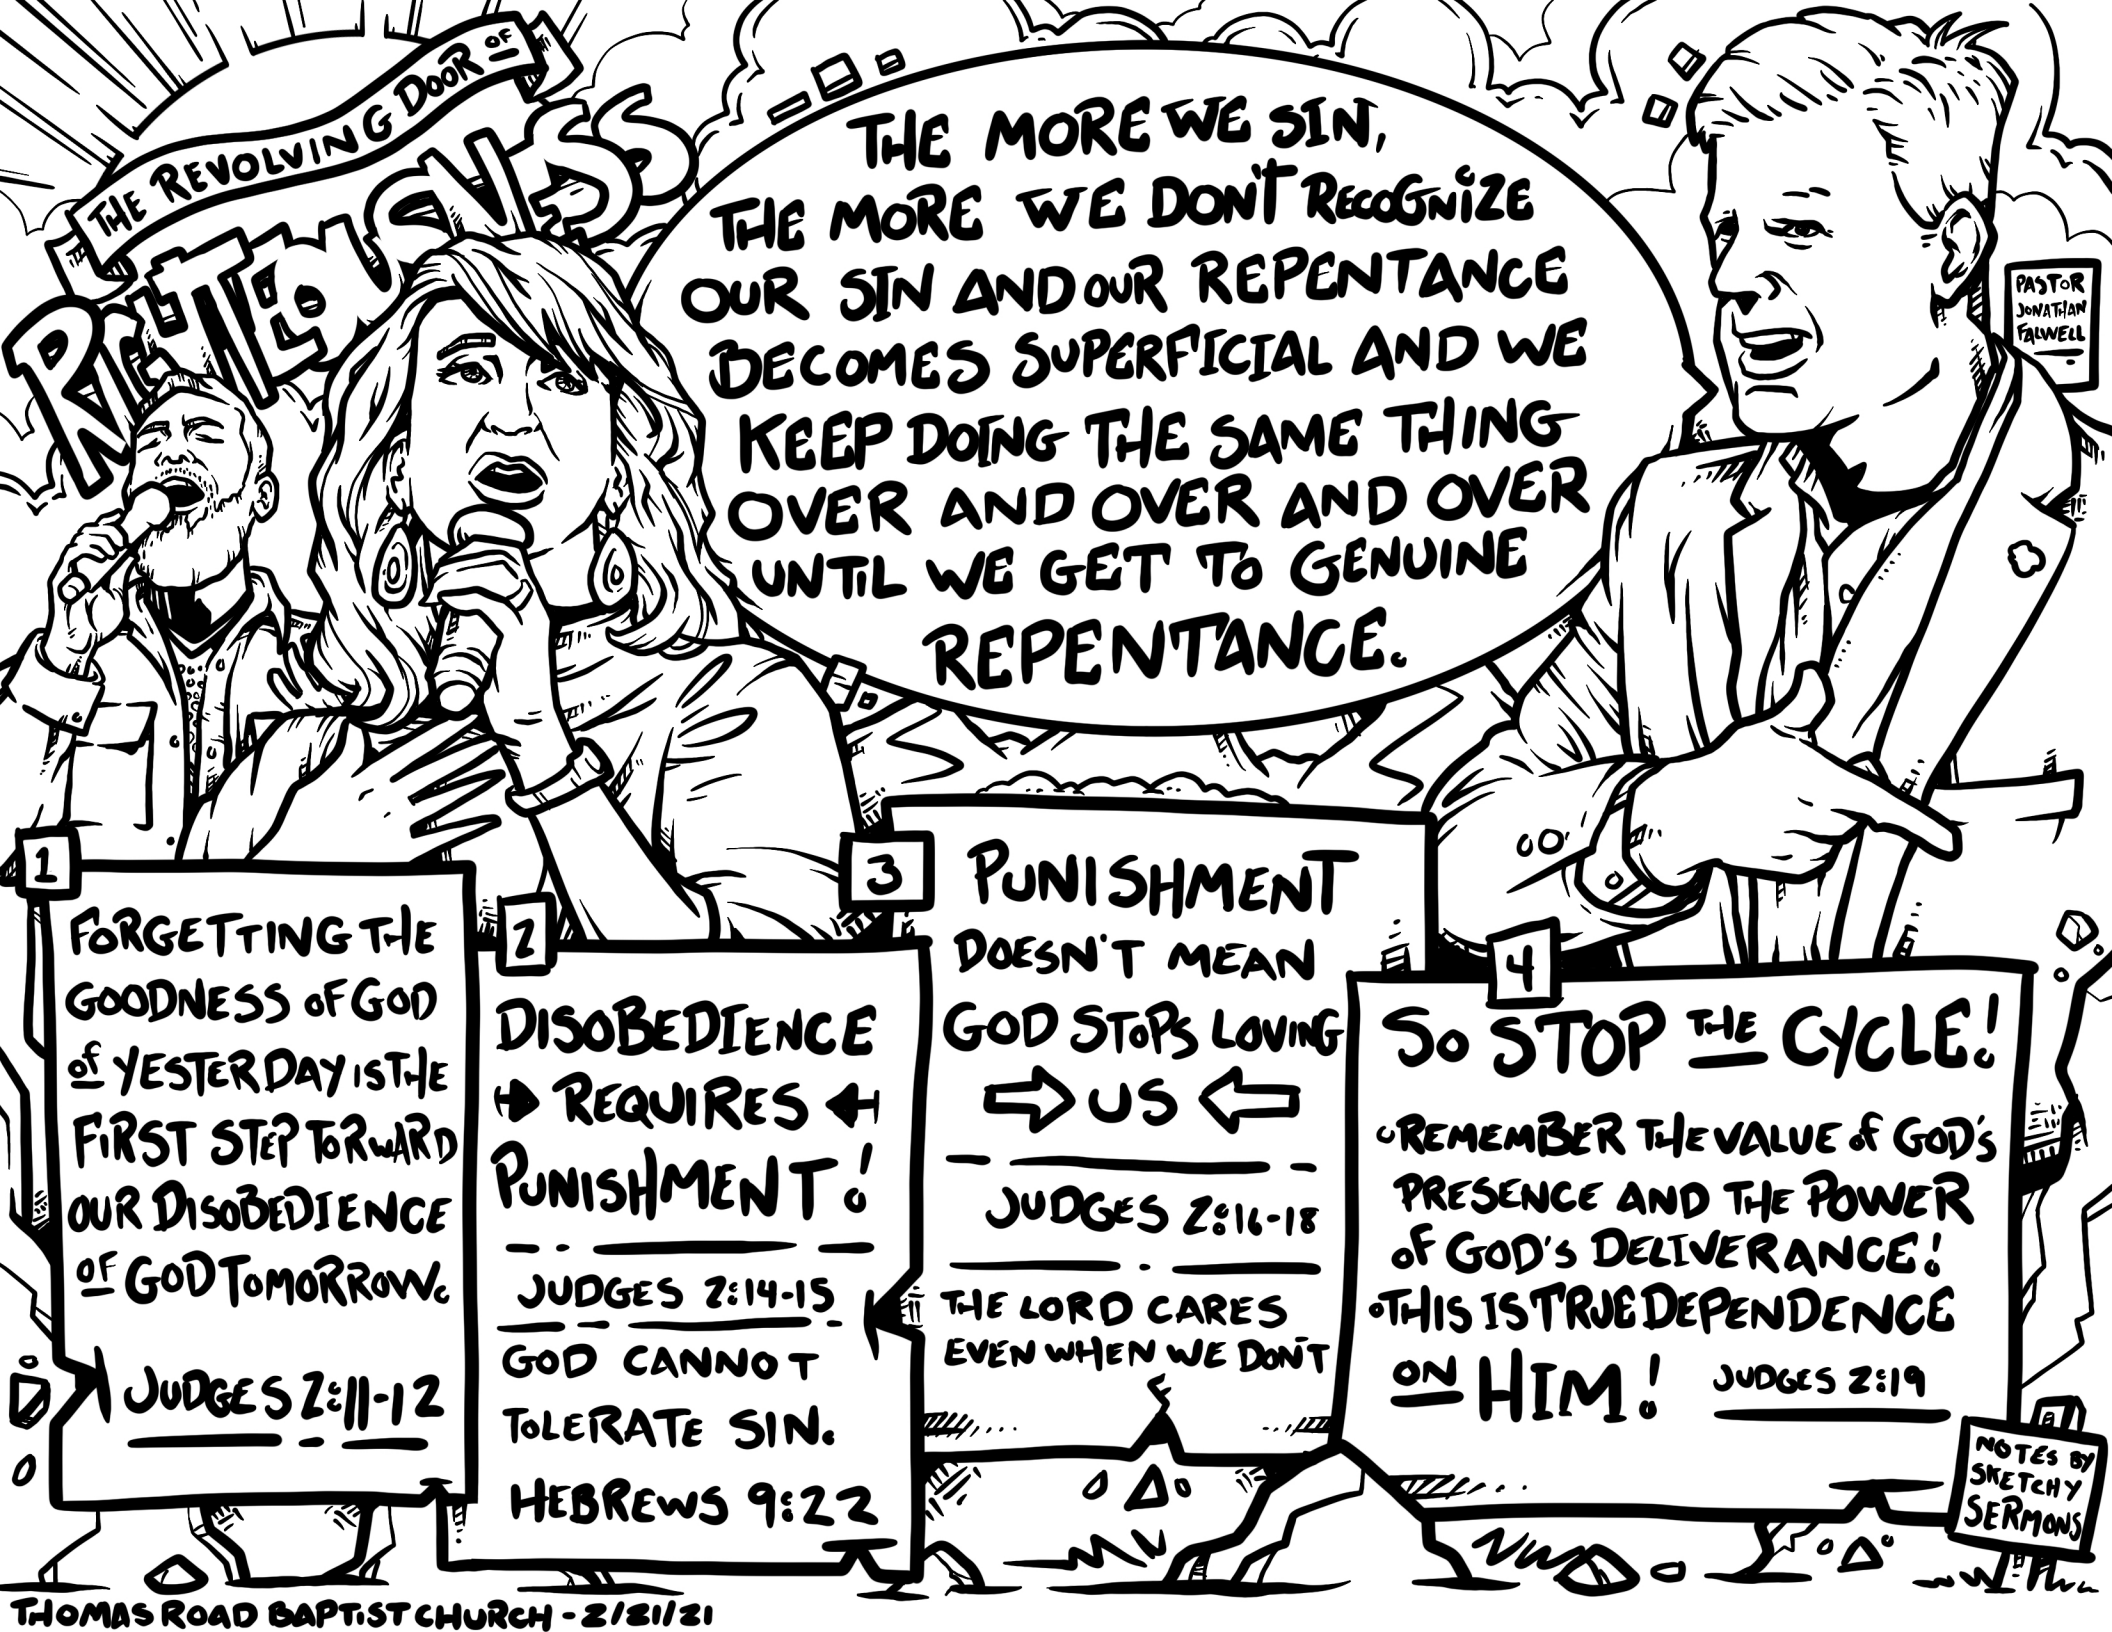 THE REVOLVING DOOR OF
THE MORE WE SIN,
THE MORE WE DON'T RECOGNIZE
OUR SIN AND OUR REPENTANCE
BECOMES SUPERFICIAL AND WE
KEEP DOING THE SAME THING
OVER AND OVER AND OVER
UNTIL WE GET TO GENUINE
REPENTANCE.
PASTOR
JONATHAN
FALWELL
1
FORGETTING THE
GOODNESS OF GOD
OF YESTERDAY IS THE
FIRST STEP TORWARD
OUR DISOBEDIENCE
OF GOD TOMORROW.
JUDGES 2:11-12
2
DISOBEDIENCE
REQUIRES
PUNISHMENT!
JUDGES 2:14-15
GOD CANNOT
TOLERATE SIN.
HEBREWS 9:22
3
PUNISHMENT
DOESN'T MEAN
GOD STOPS LOVING
US
JUDGES 2:16-18
THE LORD CARES
EVEN WHEN WE DON'T
4
SO STOP THE CYCLE!
REMEMBER THE VALUE OF GOD'S
PRESENCE AND THE POWER
OF GOD'S DELIVERANCE!
THIS IS TRUE DEPENDENCE
ON HIM! JUDGES 2:19
NOTES BY
SKETCHY
SERMONS
THOMAS ROAD BAPTIST CHURCH - 2/21/21